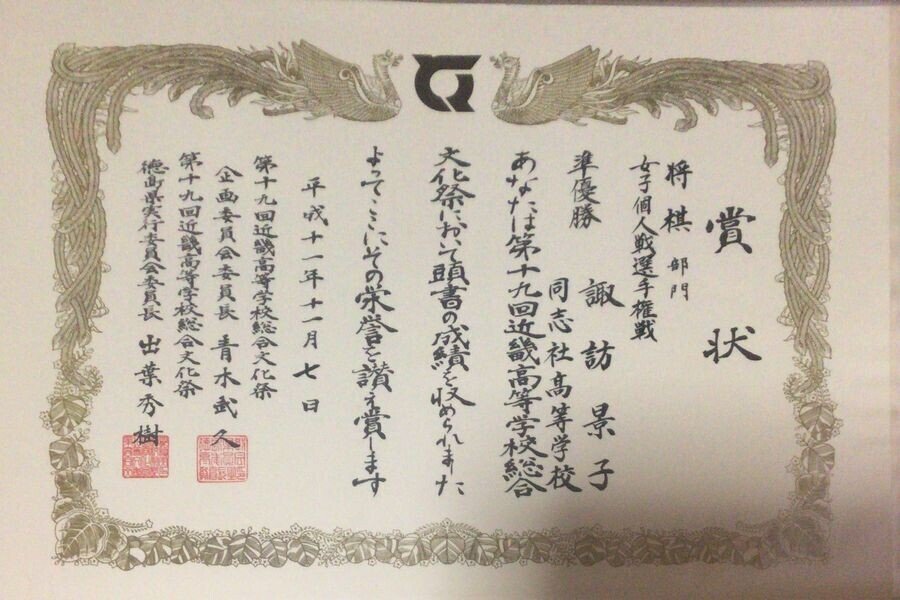 賞状
将棋部門
女子個人戦選手権戦
準優勝 諏訪景子
同志社高等学校
あなたは第十九回近畿高等学校総合
文化祭において頭書の成績を収められました
よってここにその栄誉を讃え賞します
平成十一年十一月七日
第十九回近畿高等学校総合文化祭
企画委員会委員長 青木武久
第十九回近畿高等学校総合文化祭
徳島県実行委員会委員長 出葉秀樹